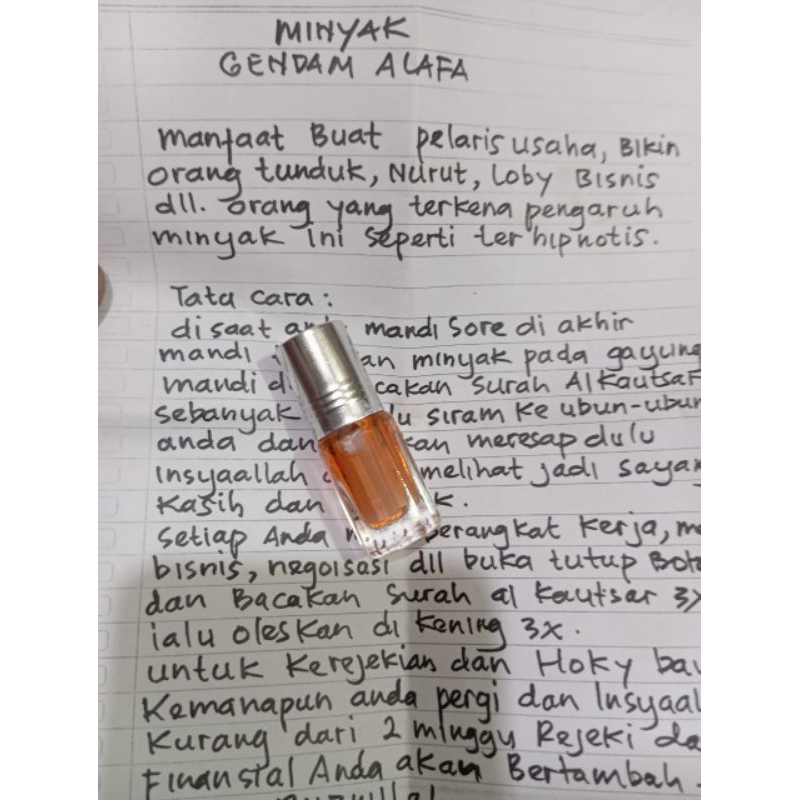 MINYAK
GENDAM ALAFA
manfaat Buat pelaris usaha, Bikin
orang tunduk, Nurut, Loby Bisnis
dll. orang yang terkena pengaruh
minyak ini seperti ter hipnotis.
Tata cara :
di saat mandi sore di akhir
mandi minyak pada gayung
mandi surah Alkautsar
sebanyak siram ke ubun-ubun
anda dan meresap dulu
insyaallah melihat jadi
Kasih dan
setiap Anda berangkat kerja,
bisnis, negoisasi dll buka tutup
dan Bacakan surah al kautsar 3x
lalu oleskan di kening 3x.
untuk Kerejekian dan Hoky
Kemanapun anda pergi dan
Kurang dari 2 minggu Rejeki
Finansial Anda akan Bertambah.